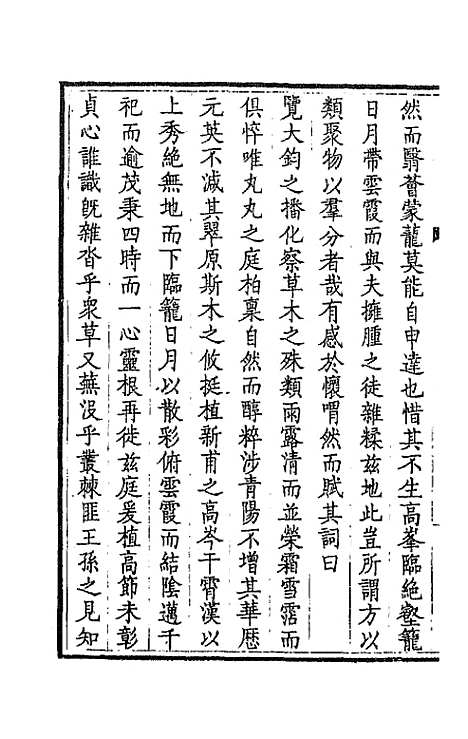 然而翳薈蒙蘢莫能自申達也惜其不生高峯臨絶壑籠
日月帶雲霞而與夫擁腫之徒雜糅兹地此豈所謂方以
類聚物以羣分者哉有感於懷喟然而賦其詞曰
覽大鈞之播化察草木之殊類雨露清而並榮霜雪霑而
俱悴唯丸丸之庭柏稟自然而醇粹涉青陽不增其華歴
元英不減其翠原斯木之攸挺植新甫之高岑干霄漢以
上秀絶無地而下臨籠日月以散彩俯雲霞而結陰邁千
祀而逾茂秉四時而一心靈根再徙兹庭爰植高節未彰
貞心誰識旣雜沓乎衆草又蕪没乎叢棘匪王孫之見知